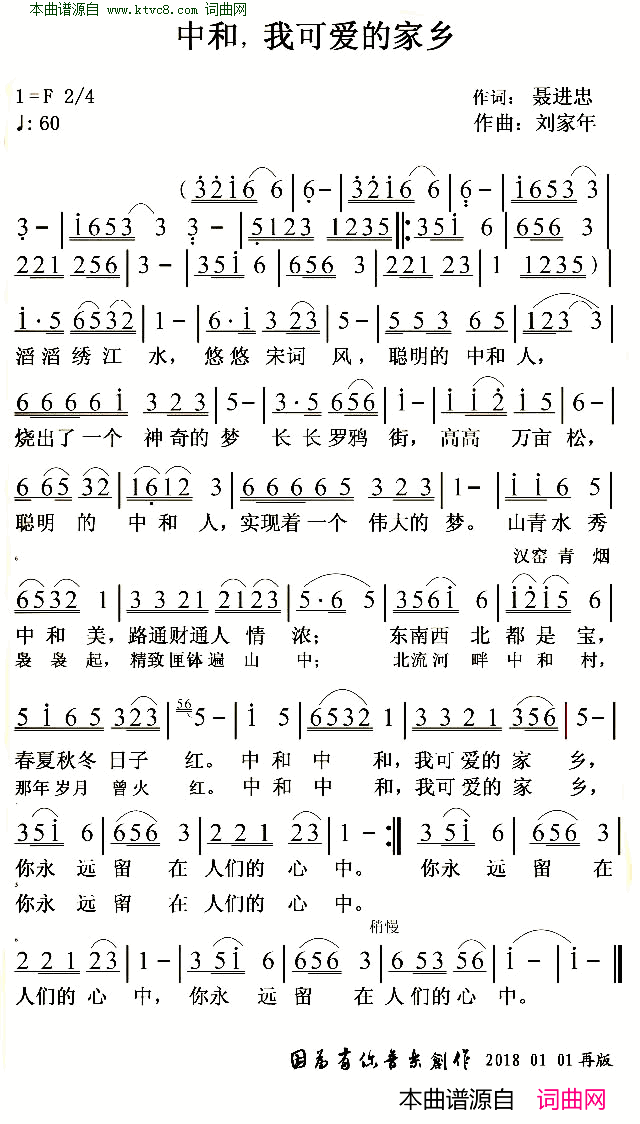 本曲谱源自 www.ktvc8.com 词曲网
中和，我可爱的家乡
1=F 2/4 作词：聂进忠
♩:60 作曲：刘家年
(3216 6 | 6- | 3216 6 | 6- | 1653 3 |
3- | 1653 3 3- | 5123 1235 |: 351 6 | 656 3 |
221 256 | 3- | 351 6 | 656 3 | 221 23 | 1 1235)|
1·5 6532 | 1- | 6·1 3 23 | 5- | 5 5 3 65 | 123 3 |
滔滔绣江水，悠悠宋词风，聪明的中和人，
6 6 6 6 1 3 2 3 | 5- | 3·5 656 | 1- | 1 1 2 1 5 | 6- |
烧出了一个神奇的梦 长长罗鸦街，高高万亩松，
6 65 32 | 1612 3 | 6 6 6 6 5 3 2 3 | 1- | 1 1 6 5 |
聪明的中和人，实现着一个伟大的梦。山青水秀
。 汉窑青烟
6532 1 | 3 3 21 2123 | 5·6 5 | 3561 6 | 1215 5 |
中和美，路通财通人情浓； 东南西北都是宝，
袅袅起，精致匣钵遍山中； 北流河畔中和村，
5 1 65 323 | 56 5- | 1 5 | 6532 1 | 3 3 2 1 356 | 5- |
春夏秋冬日子红。中和中和，我可爱的家乡，
那年岁月曾火红。中和中和，我可爱的家乡，
351 6 | 656 3 | 2 2 1 23 | 1- :| 351 6 | 656 3 |
你永远留在人们的心中。 你永远留在
你永远留在人们的心中。
稍慢
2 2 1 23 | 1- | 3 51 6 | 656 3 | 6 53 56 | 1- | 1- |
人们的心中，你永远留在人们的心中。
因为有你音乐創作 2018 01 01再版
本曲谱源自 词曲网